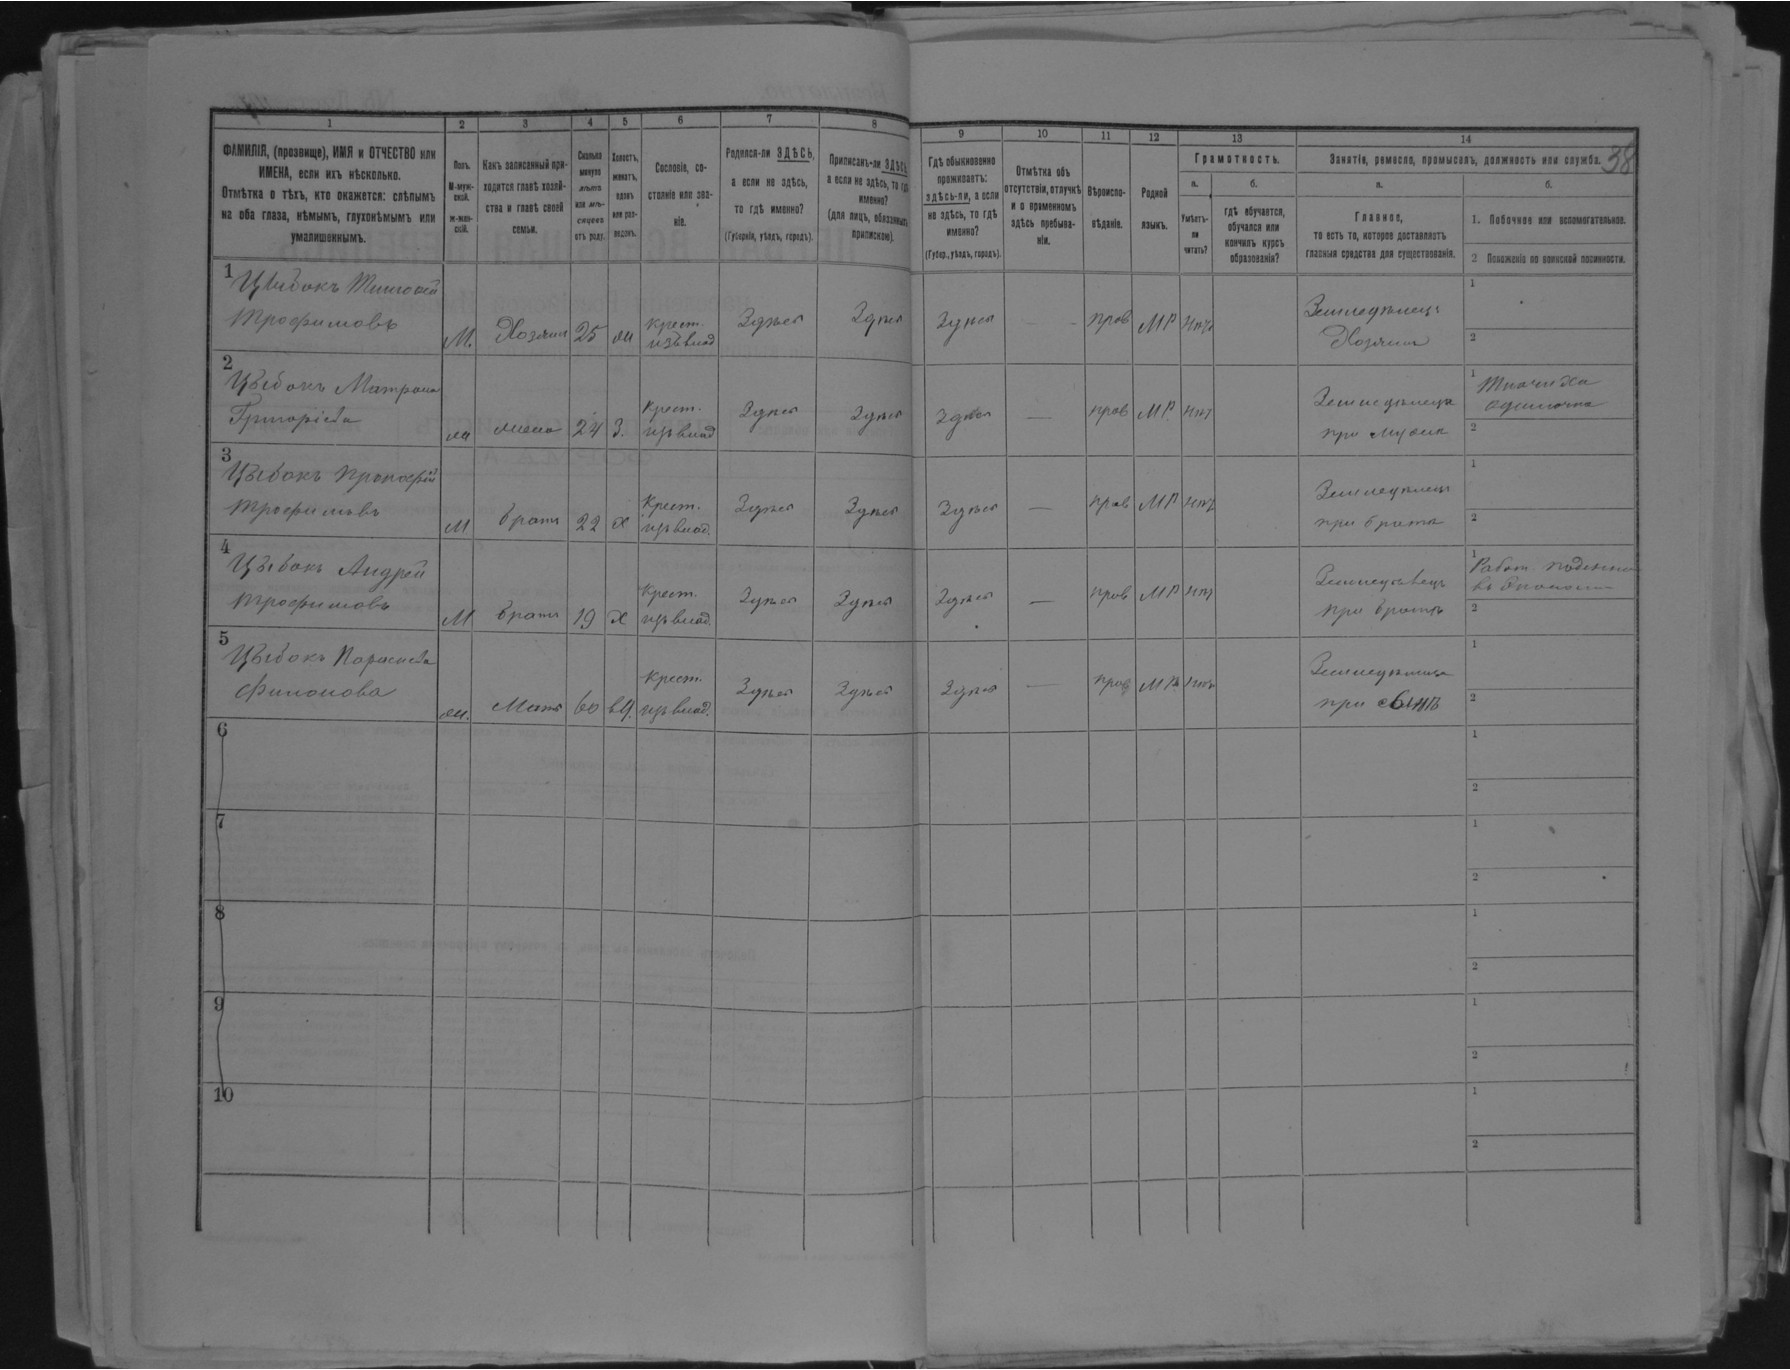 38
1 2 3 4 5 6 7 8 9 10 11 12 13 14
ФАМИЛІЯ, (прозвище), ИМЯ и ОТЧЕСТВО или
ИМЕНА, если ихъ нѣсколько.
Отмѣтка о тѣхъ, кто окажется: слѣпымъ
на оба глаза, нѣмымъ, глухонѣмымъ или
умалишеннымъ.
Полъ.
М-муж-
ской.
Ж-жен-
скій.
Какъ записанный при-
ходится главѣ хозяй-
ства и главѣ своей
семьи.
Сколько
минуло
лѣтъ
или мѣ-
сяцевъ
отъ роду.
Холостъ,
женатъ,
вдовъ
или раз-
веденъ.
Сословіе, со-
стояніе или зва-
ніе.
Родился-ли ЗДѢСЬ,
а если не здѣсь,
то гдѣ именно?
(Губернія, уѣздъ, городъ).
Приписанъ-ли ЗДѢСЬ,
а если не здѣсь, то гдѣ
именно?
(для лицъ, обязанныхъ
припискою).
Гдѣ обыкновенно
проживаетъ:
здѣсь-ли, а если
не здѣсь, то гдѣ
именно?
(Губер., уѣздъ, городъ).
Отмѣтка объ
отсутствіи, отлучкѣ
и о временномъ
здѣсь пребыва-
ніи.
Вѣроиспо-
вѣданіе.
Родной
языкъ.
Грамотность.
а.
Умѣетъ-
ли
читать?
б.
гдѣ обучается,
обучался или
кончилъ курсъ
образованія?
Занятіе, ремесло, промыселъ, должность или служба.
а.
Главное,
то есть то, которое доставляетъ
главныя средства для существованія.
б.
1. Побочное или вспомогательное.
2 Положеніе по воинской повинности.
1 Цыбокъ
Трофимовъ
М. Хозяинъ 25 ж Крест. изъ влад Здѣсь Здѣсь Здѣсь — прав МР Нѣтъ
Земледѣлецъ
Хозяинъ
1
2
2 Цыбокъ Матрона
Григоріева
ж жена 24 З. Крест. изъ влад Здѣсь Здѣсь Здѣсь — прав МР. Нѣтъ
Земледѣлица
при мужѣ
1 Ткачиха
одиночка
2
3 Цыбокъ Прокофій
Трофимовъ
М братъ 22 Х Крест. изъ влад. Здѣсь Здѣсь Здѣсь — прав МР Нѣтъ
Земледѣлецъ
при братѣ
1
2
4 Цыбокъ Андрей
Трофимовъ
М братъ 19 Х Крест. изъ влад. Здѣсь Здѣсь Здѣсь — прав МР Нѣтъ
Земледѣлецъ
при братѣ
1 Работ. поденно
въ Экономіи
2
5 Цыбокъ Параскева
Филонова
ж. Мать 60 вд. Крест. изъ влад. Здѣсь Здѣсь Здѣсь — прав МР Нѣтъ
Земледѣлица
при сынѣ
1
2
6
1
2
7
1
2
8
1
2
9
1
2
10
1
2